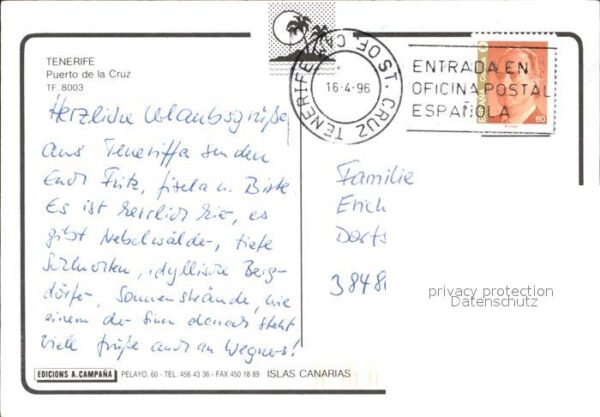 TENERIFE
Puerto de la Cruz
TF. 8003
Herzliche Urlaubsgrüße
aus Teneriffa senden
Euch Fritz, Gisela u. Birte.
Es ist herrlich hier, es
gibt Nebelwälder, tiefe
Schluchten, idyllische Berg-
dörfer, Sonnenstrände, wie
einem der Sinn danach steht.
Viele Grüße auch an Wegners!
OF. ST. CRUZ TENERIFE
16-4-96
ENTRADA EN
OFICINA POSTAL
ESPAÑOLA
60
Familie
Erich
3848
privacy protection
Datenschutz
EDICIONS A. CAMPAÑA PELAYO, 60 - TEL. 456 43 36 - FAX 450 18 89 ISLAS CANARIAS